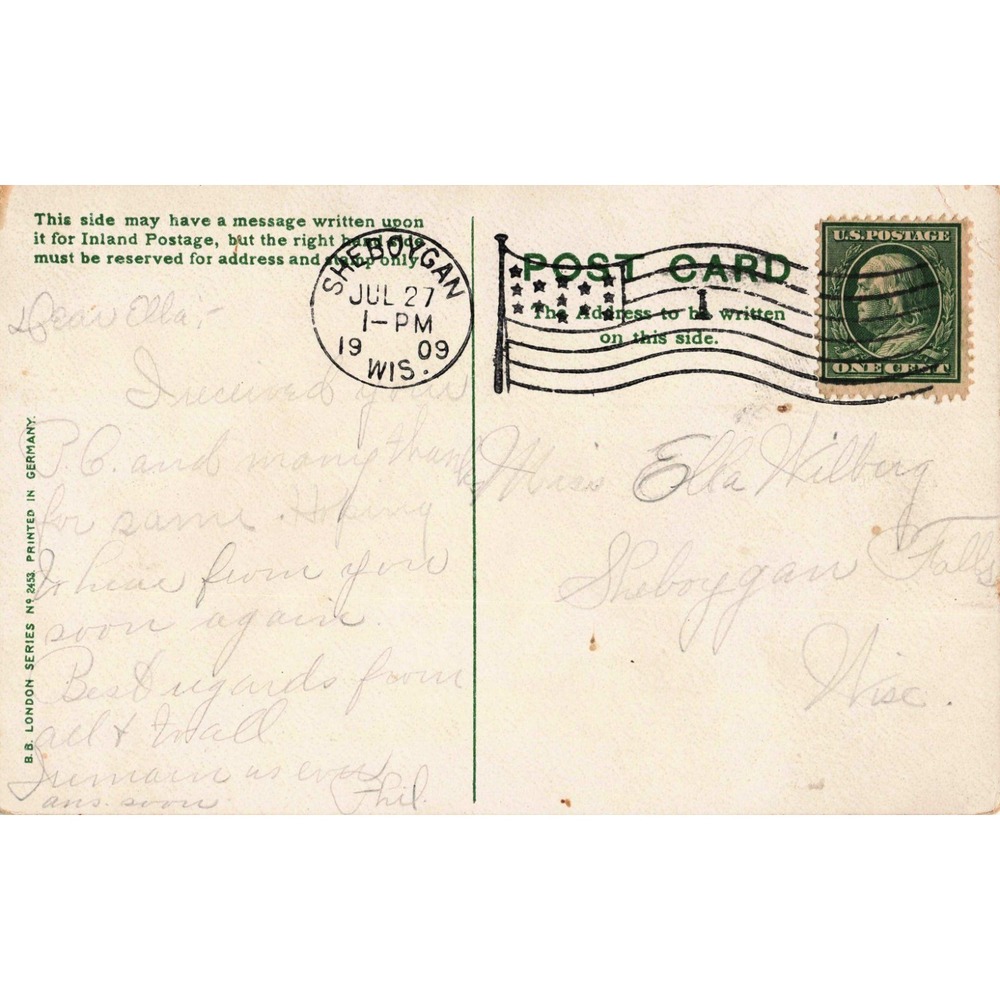 This side may have a message written upon
it for Inland Postage, but the right hand side
must be reserved for address and stamp only.
SHEBOYGAN
JUL 27
1-PM
19 09
WIS.
POST CARD
1
The Address to be written
on this side.
U.S. POSTAGE
ONE CENT
B. B. LONDON SERIES No 2453. PRINTED IN GERMANY.
Dear Ella;-
I received your
P.C. and many thanks
for same. Hoping
to hear from you
soon again.
Best regards from
all &
I remain as ever
ans. soon Phil.
Miss Ella Wilberg
Sheboygan Falls
Wisc.